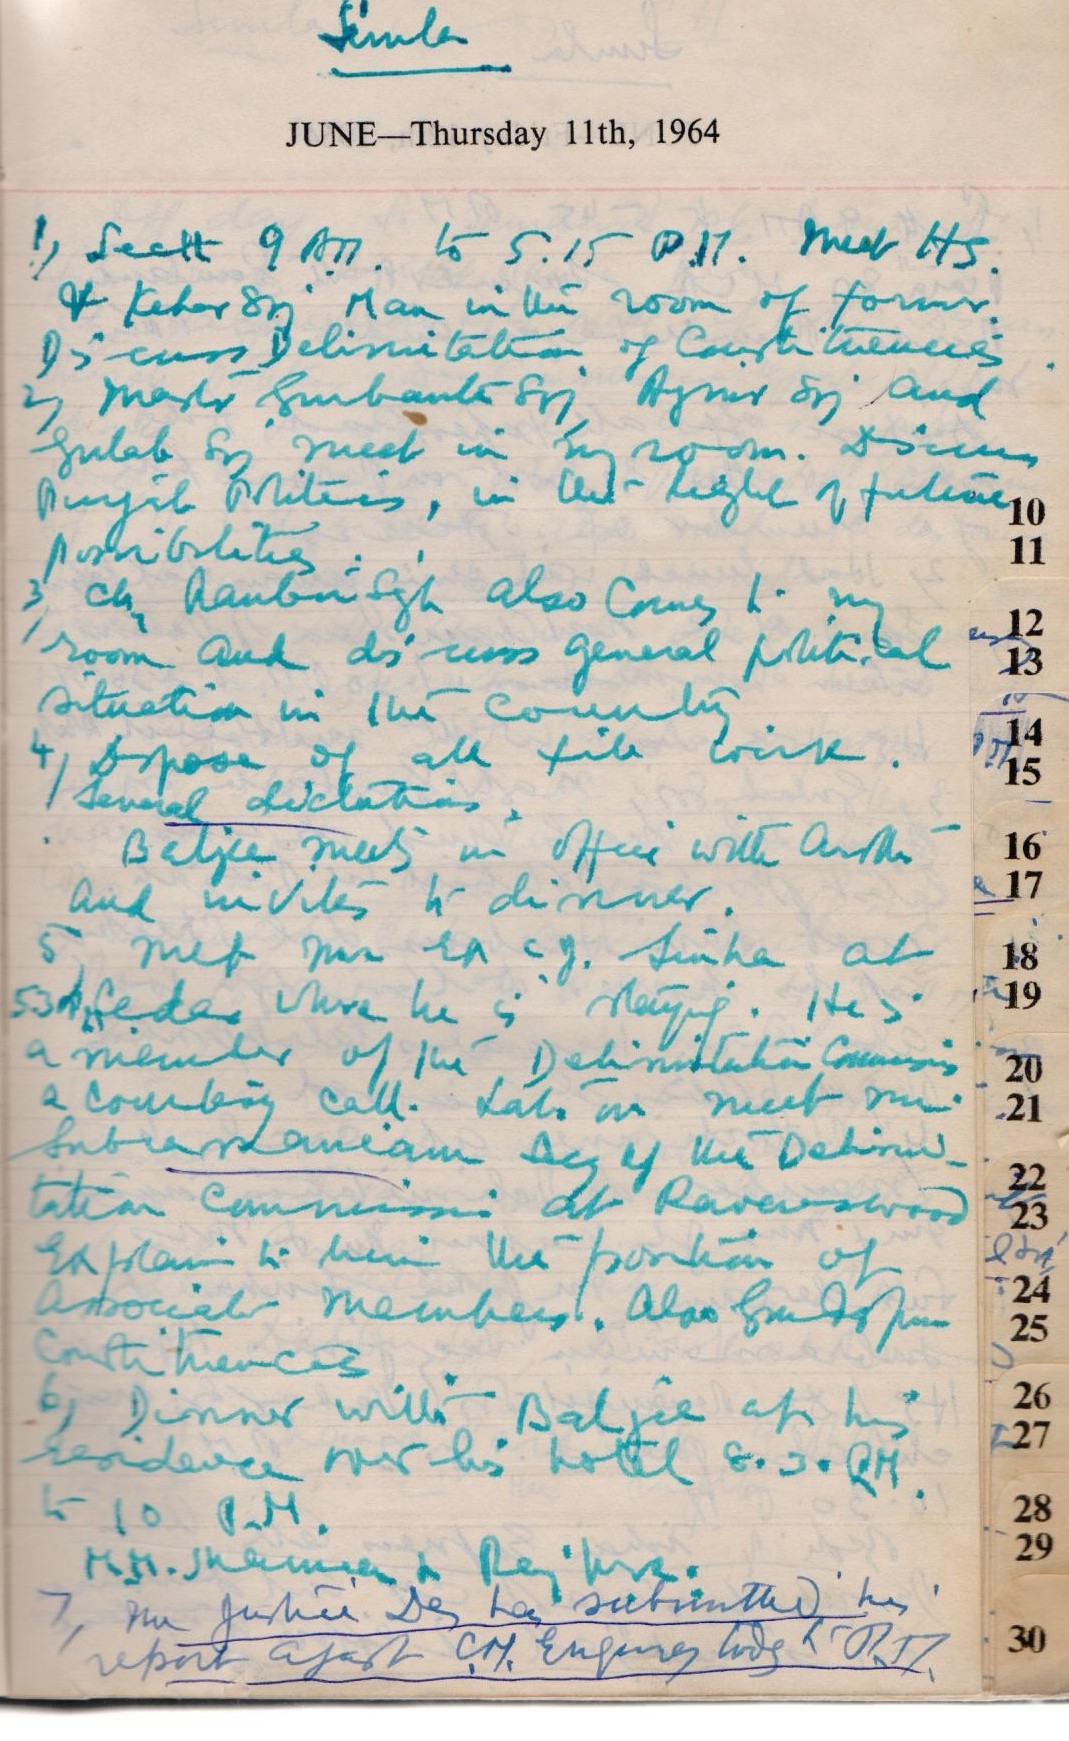 Simla
JUNE—Thursday 11th, 1964
1, Sectt 9 A.M. to 5.15 P.M. Meet H.S.
& Kehar Sgh Man in the room of former.
Discuss Delimitation of Constituencies.
2, Master Gurbanta Sgh Ajmer Sgh and
Gulab Sgh meet in my room. Discuss
Punjab Politics, in the light of future
possibilities.
3, Ch. Ranbir Sgh also Comes to my
room and discuss general political
situation in the country.
4, Dispose of all file work.
Several dictations.
Baljee meets in office with
and invites to dinner.
5, Meet Mr. Sinha at
5.30 Cedar where he is staying. He is
a member of the Delimitation Commission
a courtesy call. Later on meet Mr.
Subramaniam Secy of the Delimi-
tation Commission at Ravenswood
Explain to him the position of
Associate Members. Also Gurdaspur
Constituencies
6, Dinner with Baljee at his
residence over his hotel 8.30 P.M.
to 10 P.M.
7, Mr Justice Das has submitted his
report C.M. Enquiry today to P.M.
10
11
12
13
14
15
16
17
18
19
20
21
22
23
24
25
26
27
28
29
30